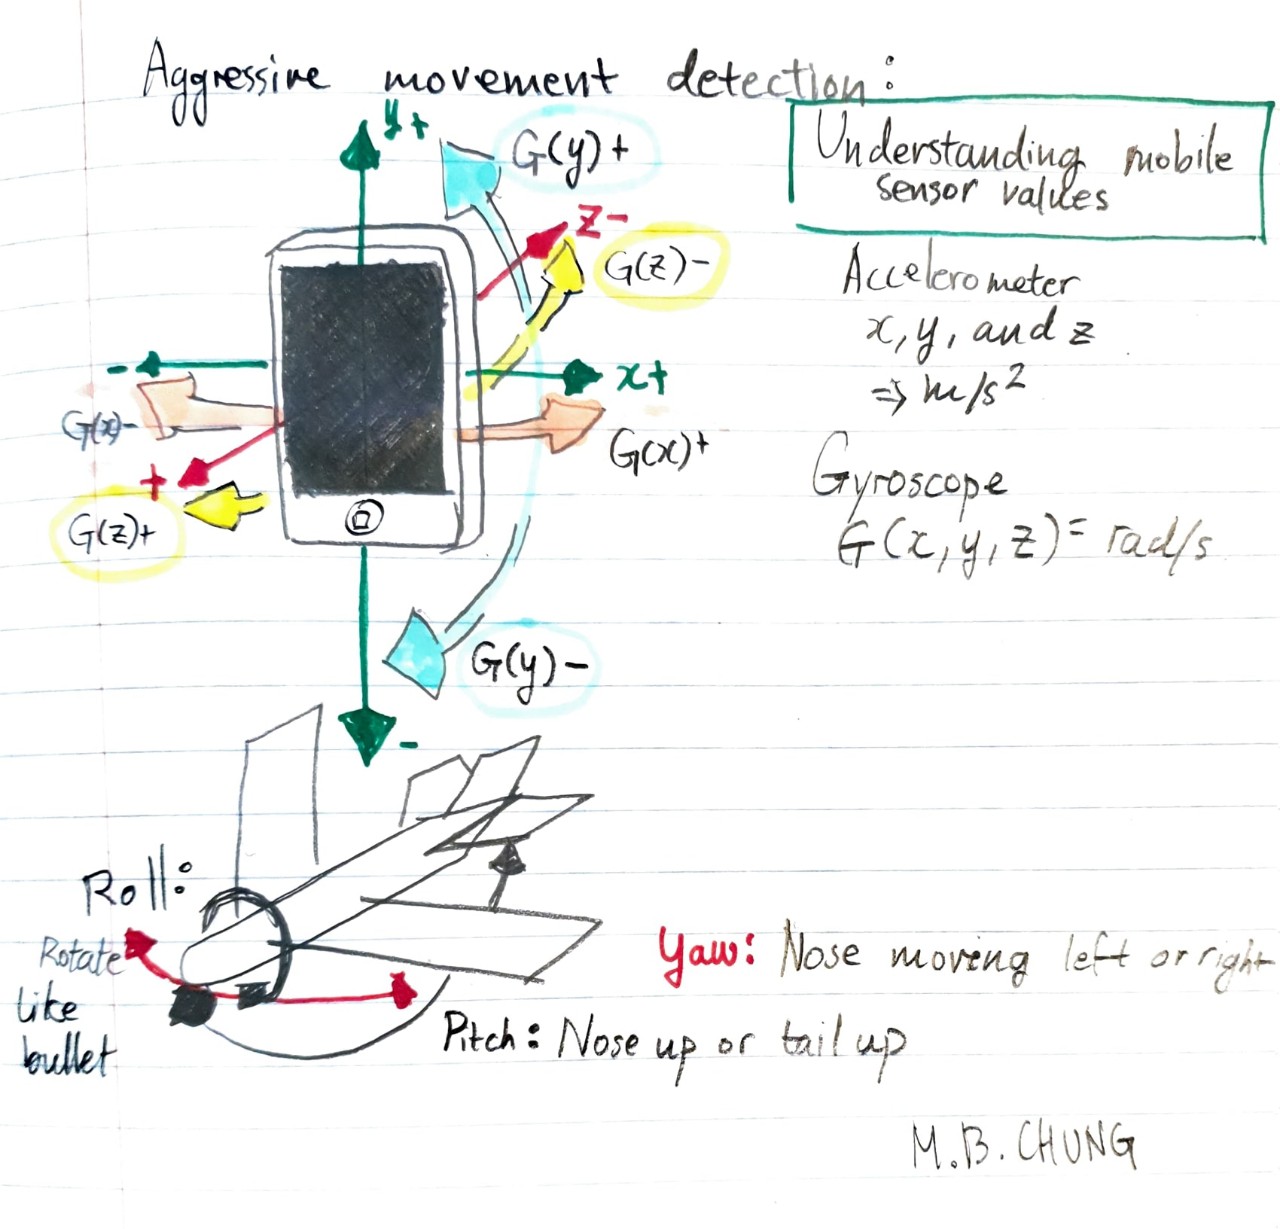 Aggressive movement detection:
Understanding mobile
sensor values
y+
G(y)+
z-
G(z)-
-
x+
G(x)-
G(x)+
+
G(z)+
G(y)-
-
Accelerometer
x, y, and z
⇒ m/s²
Gyroscope
G(x, y, z) = rad/s
Roll:
Rotate
like
bullet
Yaw: Nose moving left or right
Pitch: Nose up or tail up
M.B. CHUNG